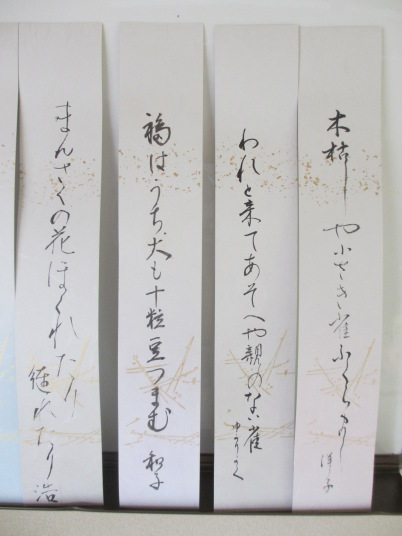 木枯しや小さき雀ふくらめり
洋子
われと来てあそべや親のない雀
福はうち犬も十粒豆つまむ
和子
まんさくの花ほぐれたり
縺れたり 浩